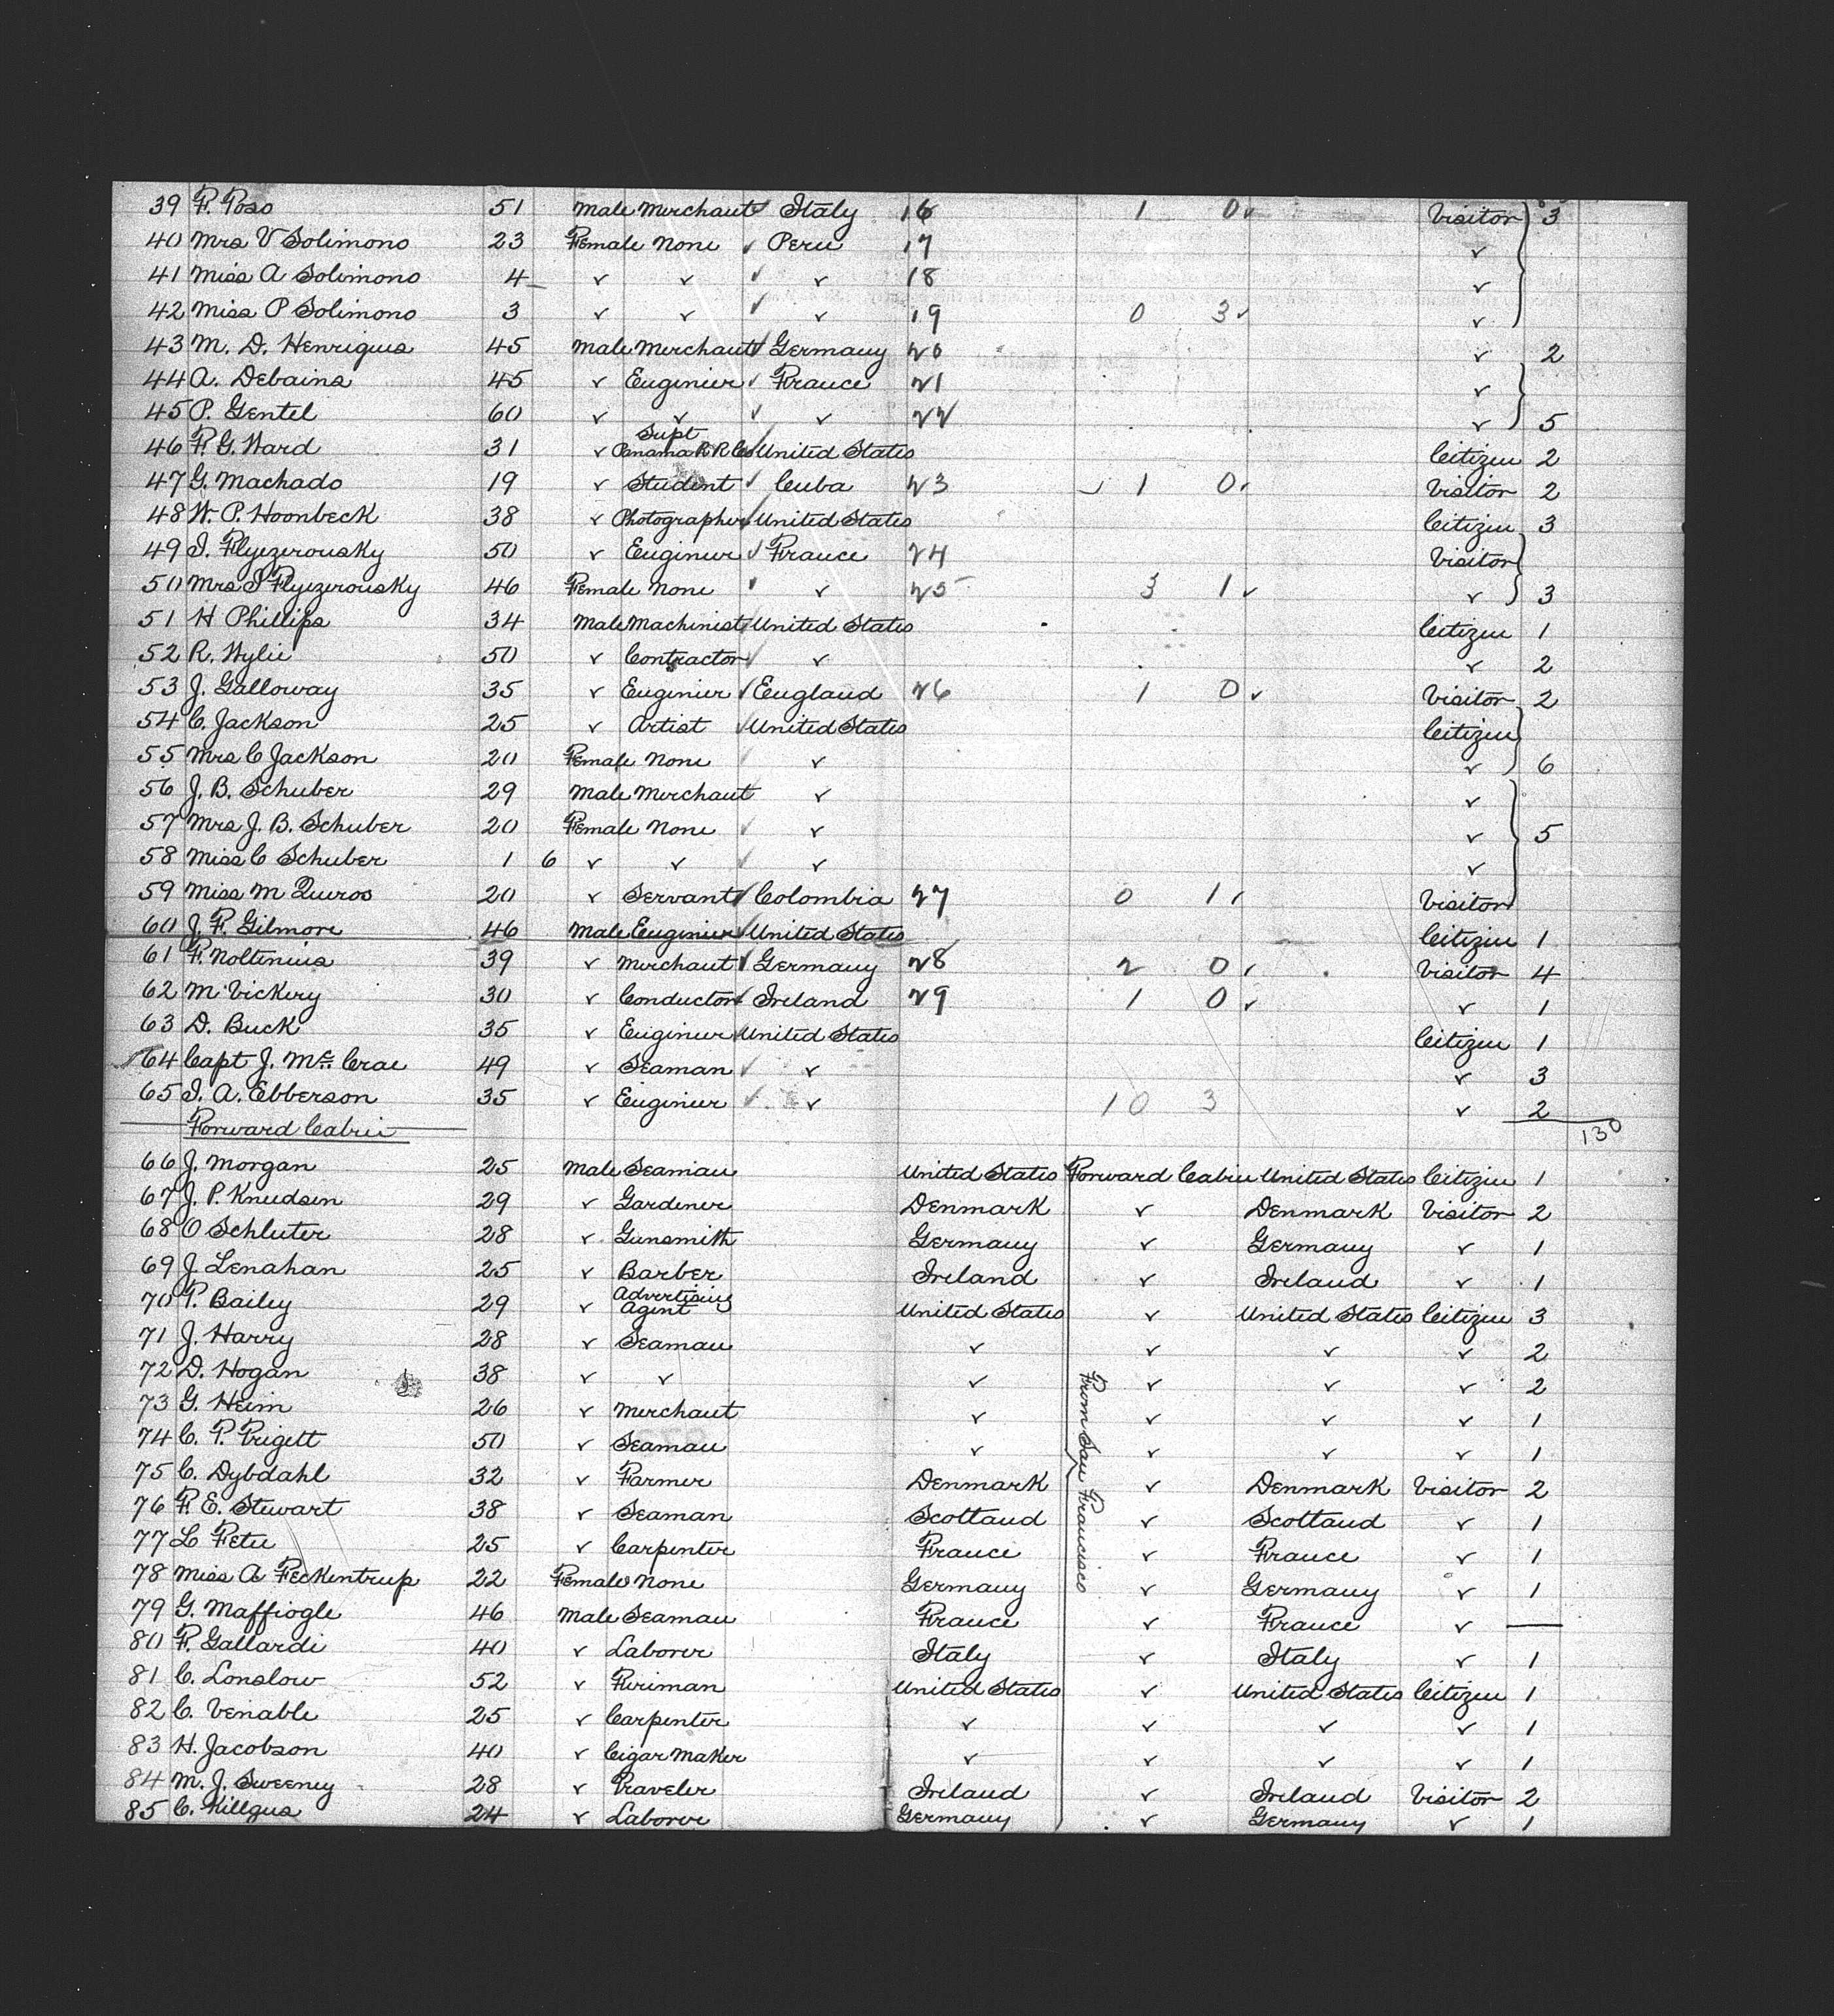 39 F. Poso 51 Male Merchant ✓ Italy 16 1 0 ✓ Visitor 3
40 Mrs V Solimono 23 Female None ✓ Peru 17 ✓
41 Miss A Solimono 4 ✓ ✓ ✓ ✓ 18 ✓
42 Miss P Solimono 3 ✓ ✓ ✓ ✓ 19 0 3 ✓ ✓
43 M. D. Henriques 45 Male Merchant ✓ Germany 20 ✓ 2
44 A. Debains 45 ✓ Engineer ✓ France 21 ✓
45 P. Gentel 60 ✓ ✓ ✓ ✓ 22 ✓ 5
46 F. G. Ward 31 ✓ Supt Panama R R Co ✓ United States Citizen 2
47 G. Machado 19 ✓ Student ✓ Cuba 23 1 0 ✓ Visitor 2
48 W. P. Hoonbeck 38 ✓ Photographer ✓ United States Citizen 3
49 I. Flyezerousky 50 ✓ Engineer ✓ France 24 Visitor
50 Mrs I Flyezerousky 46 Female None ✓ ✓ 25 3 1 ✓ ✓ 3
51 H Phillips 34 Male Machinist ✓ United States Citizen 1
52 R. Wylie 50 ✓ Contractor ✓ ✓ ✓ 2
53 J. Galloway 35 ✓ Engineer ✓ England 26 1 0 ✓ Visitor 2
54 C. Jackson 25 ✓ Artist ✓ United States Citizen
55 Mrs C Jackson 20 Female None ✓ ✓ ✓ 6
56 J. B. Schuber 29 Male Merchant ✓ ✓
57 Mrs J. B. Schuber 20 Female None ✓ ✓ ✓ 5
58 Miss C Schuber 1 6 ✓ ✓ ✓ ✓ ✓
59 Miss M Quiros 20 ✓ Servant ✓ Colombia 27 0 1 ✓ Visitor
60 J. F. Gilmore 46 Male Engineer ✓ United States Citizen 1
61 F. Noltenius 39 ✓ Merchant ✓ Germany 28 2 0 ✓ Visitor 4
62 M Vickery 30 ✓ Conductor ✓ Ireland 29 1 0 ✓ ✓ 1
63 D. Buck 35 ✓ Engineer ✓ United States Citizen 1
64 Capt J. Mc Crae 49 ✓ Seaman ✓ ✓ ✓ 3
65 I. A. Ebberson 35 ✓ Engineer ✓ ✓ 10 3 ✓ 2
Forward Cabin 130
66 J. Morgan 25 Male Seaman United States Forward Cabin United States Citizen 1
67 J. P. Knudsen 29 ✓ Gardener Denmark ✓ Denmark Visitor 2
68 O Schluter 28 ✓ Gunsmith Germany ✓ Germany ✓ 1
69 J. Lenahan 25 ✓ Barber Ireland ✓ Ireland ✓ 1
70 P. Bailey 29 ✓ Advertising Agent United States ✓ United States Citizen 3
71 J. Harry 28 ✓ Seaman ✓ ✓ ✓ ✓ 2
72 D. Hogan 38 ✓ ✓ ✓ ✓ ✓ ✓ 2
73 G. Heim 26 ✓ Merchant ✓ ✓ ✓ ✓ 1
74 C. P. Prigett 50 ✓ Seaman ✓ ✓ ✓ ✓ 1
75 C. Dybdahl 32 ✓ Farmer Denmark ✓ Denmark Visitor 2
From San Francisco
76 F. E. Stewart 38 ✓ Seaman Scotland ✓ Scotland ✓ 1
77 L Fetu 25 ✓ Carpenter France ✓ France ✓ 1
78 Miss A Feckentrup 22 Female None Germany ✓ Germany ✓ 1
79 G. Maffiogle 46 Male Seaman France ✓ France ✓ —
80 F. Gallardi 40 ✓ Laborer Italy ✓ Italy ✓ 1
81 C. Lonslow 52 ✓ Fireman United States ✓ United States Citizen 1
82 C. Venable 25 ✓ Carpenter ✓ ✓ ✓ ✓ 1
83 H. Jacobson 40 ✓ Cigar Maker ✓ ✓ ✓ ✓ 1
84 M. J. Sweeney 28 ✓ Traveler Ireland ✓ Ireland Visitor 2
85 C. Killgus 24 ✓ Laborer Germany ✓ Germany ✓ 1